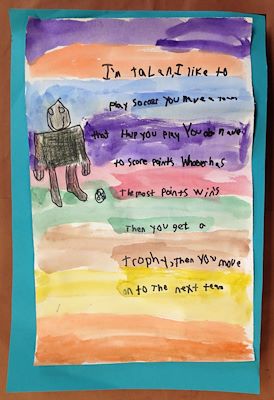 I'm talan, I like to
play soccer you have a team
that Help you play You do have
to score points Whoever has
The most points wins
Then you get a
trophy, Then you move
on to The next team